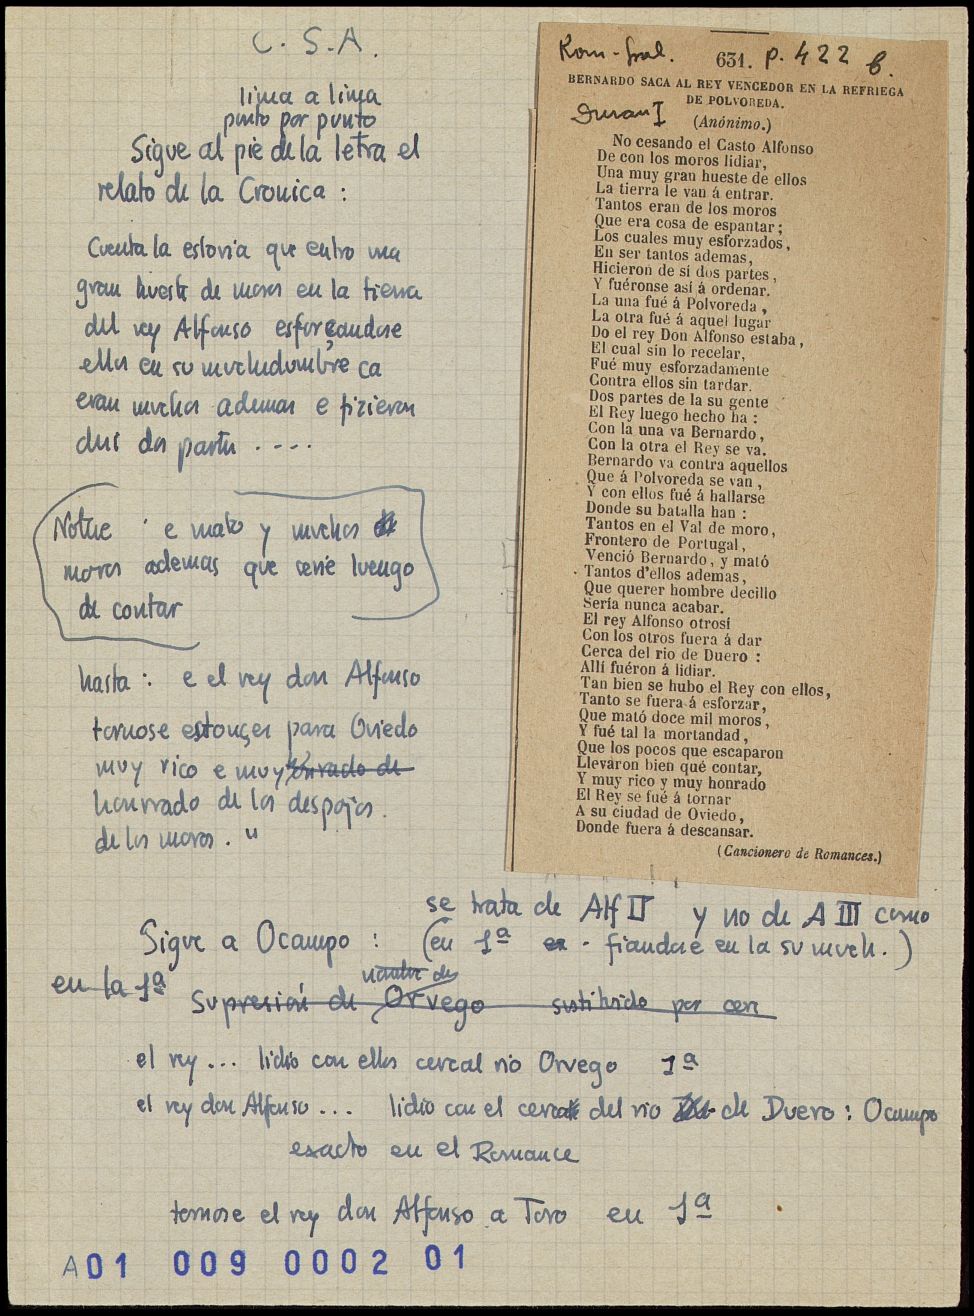 C. S. A.
linea a linea
punto por punto
Sigue al pie de la letra el
relato de la Cronica :
Cuenta la estoria que entro una
gran hueste de moros en la tierra
del rey Alfonso esforçandose
ellos en su muchedumbre ca
eran muchos ademas e fizieron
dusi dos partes ....
Notese e mato y muchos
moros ademas que serie luengo
de contar
hasta : e el rey don Alfonso
tornose estonçes para Oviedo
muy rico e muy onrado de
honrrado de los despojos
de los moros . "
Rom-gral. 631. p. 422 b.
BERNARDO SACA AL REY VENCEDOR EN LA REFRIEGA
DE POLVOREDA.
Duran I (Anónimo.)
No cesando el Casto Alfonso
De con los moros lidiar,
Una muy gran hueste de ellos
La tierra le van á entrar.
Tantos eran de los moros
Que era cosa de espantar;
Los cuales muy esforzados,
En ser tantos ademas,
Hicieron de sí dos partes,
Y fuéronse así á ordenar.
La una fué á Polvoreda,
La otra fué á aquel lugar
Do el rey Don Alfonso estaba,
El cual sin lo recelar,
Fué muy esforzadamente
Contra ellos sin tardar.
Dos partes de la su gente
El Rey luego hecho ha :
Con la una va Bernardo,
Con la otra el Rey se va.
Bernardo va contra aquellos
Que á Polvoreda se van,
Y con ellos fué á hallarse
Donde su batalla han :
Tantos en el Val de moro,
Frontero de Portugal,
Venció Bernardo, y mató
Tantos d'ellos ademas,
Que querer hombre decillo
Sería nunca acabar.
El rey Alfonso otrosí
Con los otros fuera á dar
Cerca del rio de Duero :
Allí fuéron á lidiar.
Tan bien se hubo el Rey con ellos,
Tanto se fuera á esforzar,
Que mató doce mil moros,
Y fué tal la mortandad,
Que los pocos que escaparon
Llevaron bien qué contar,
Y muy rico y muy honrado
El Rey se fué á tornar
A su ciudad de Oviedo,
Donde fuera á descansar.
(Cancionero de Romances.)
se trata de Alf II y no de A III como
Sigue a Ocampo : (en 1ª en - fiandose en la su much.)
en la 1ª
nombre de
Supresión de Orvego sustituido por cerc
el rey ... lidio con ellos cerca l rio Orvego 1ª
el rey don Alfonso ... lidio con el cerca del rio de Duero : Ocampo
exacto en el Romance
tornose el rey don Alfonso a Toro en 1ª
A01 009 0002 01